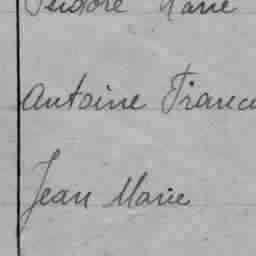 Isidore Marie
Antoine Franc
Jean Marie